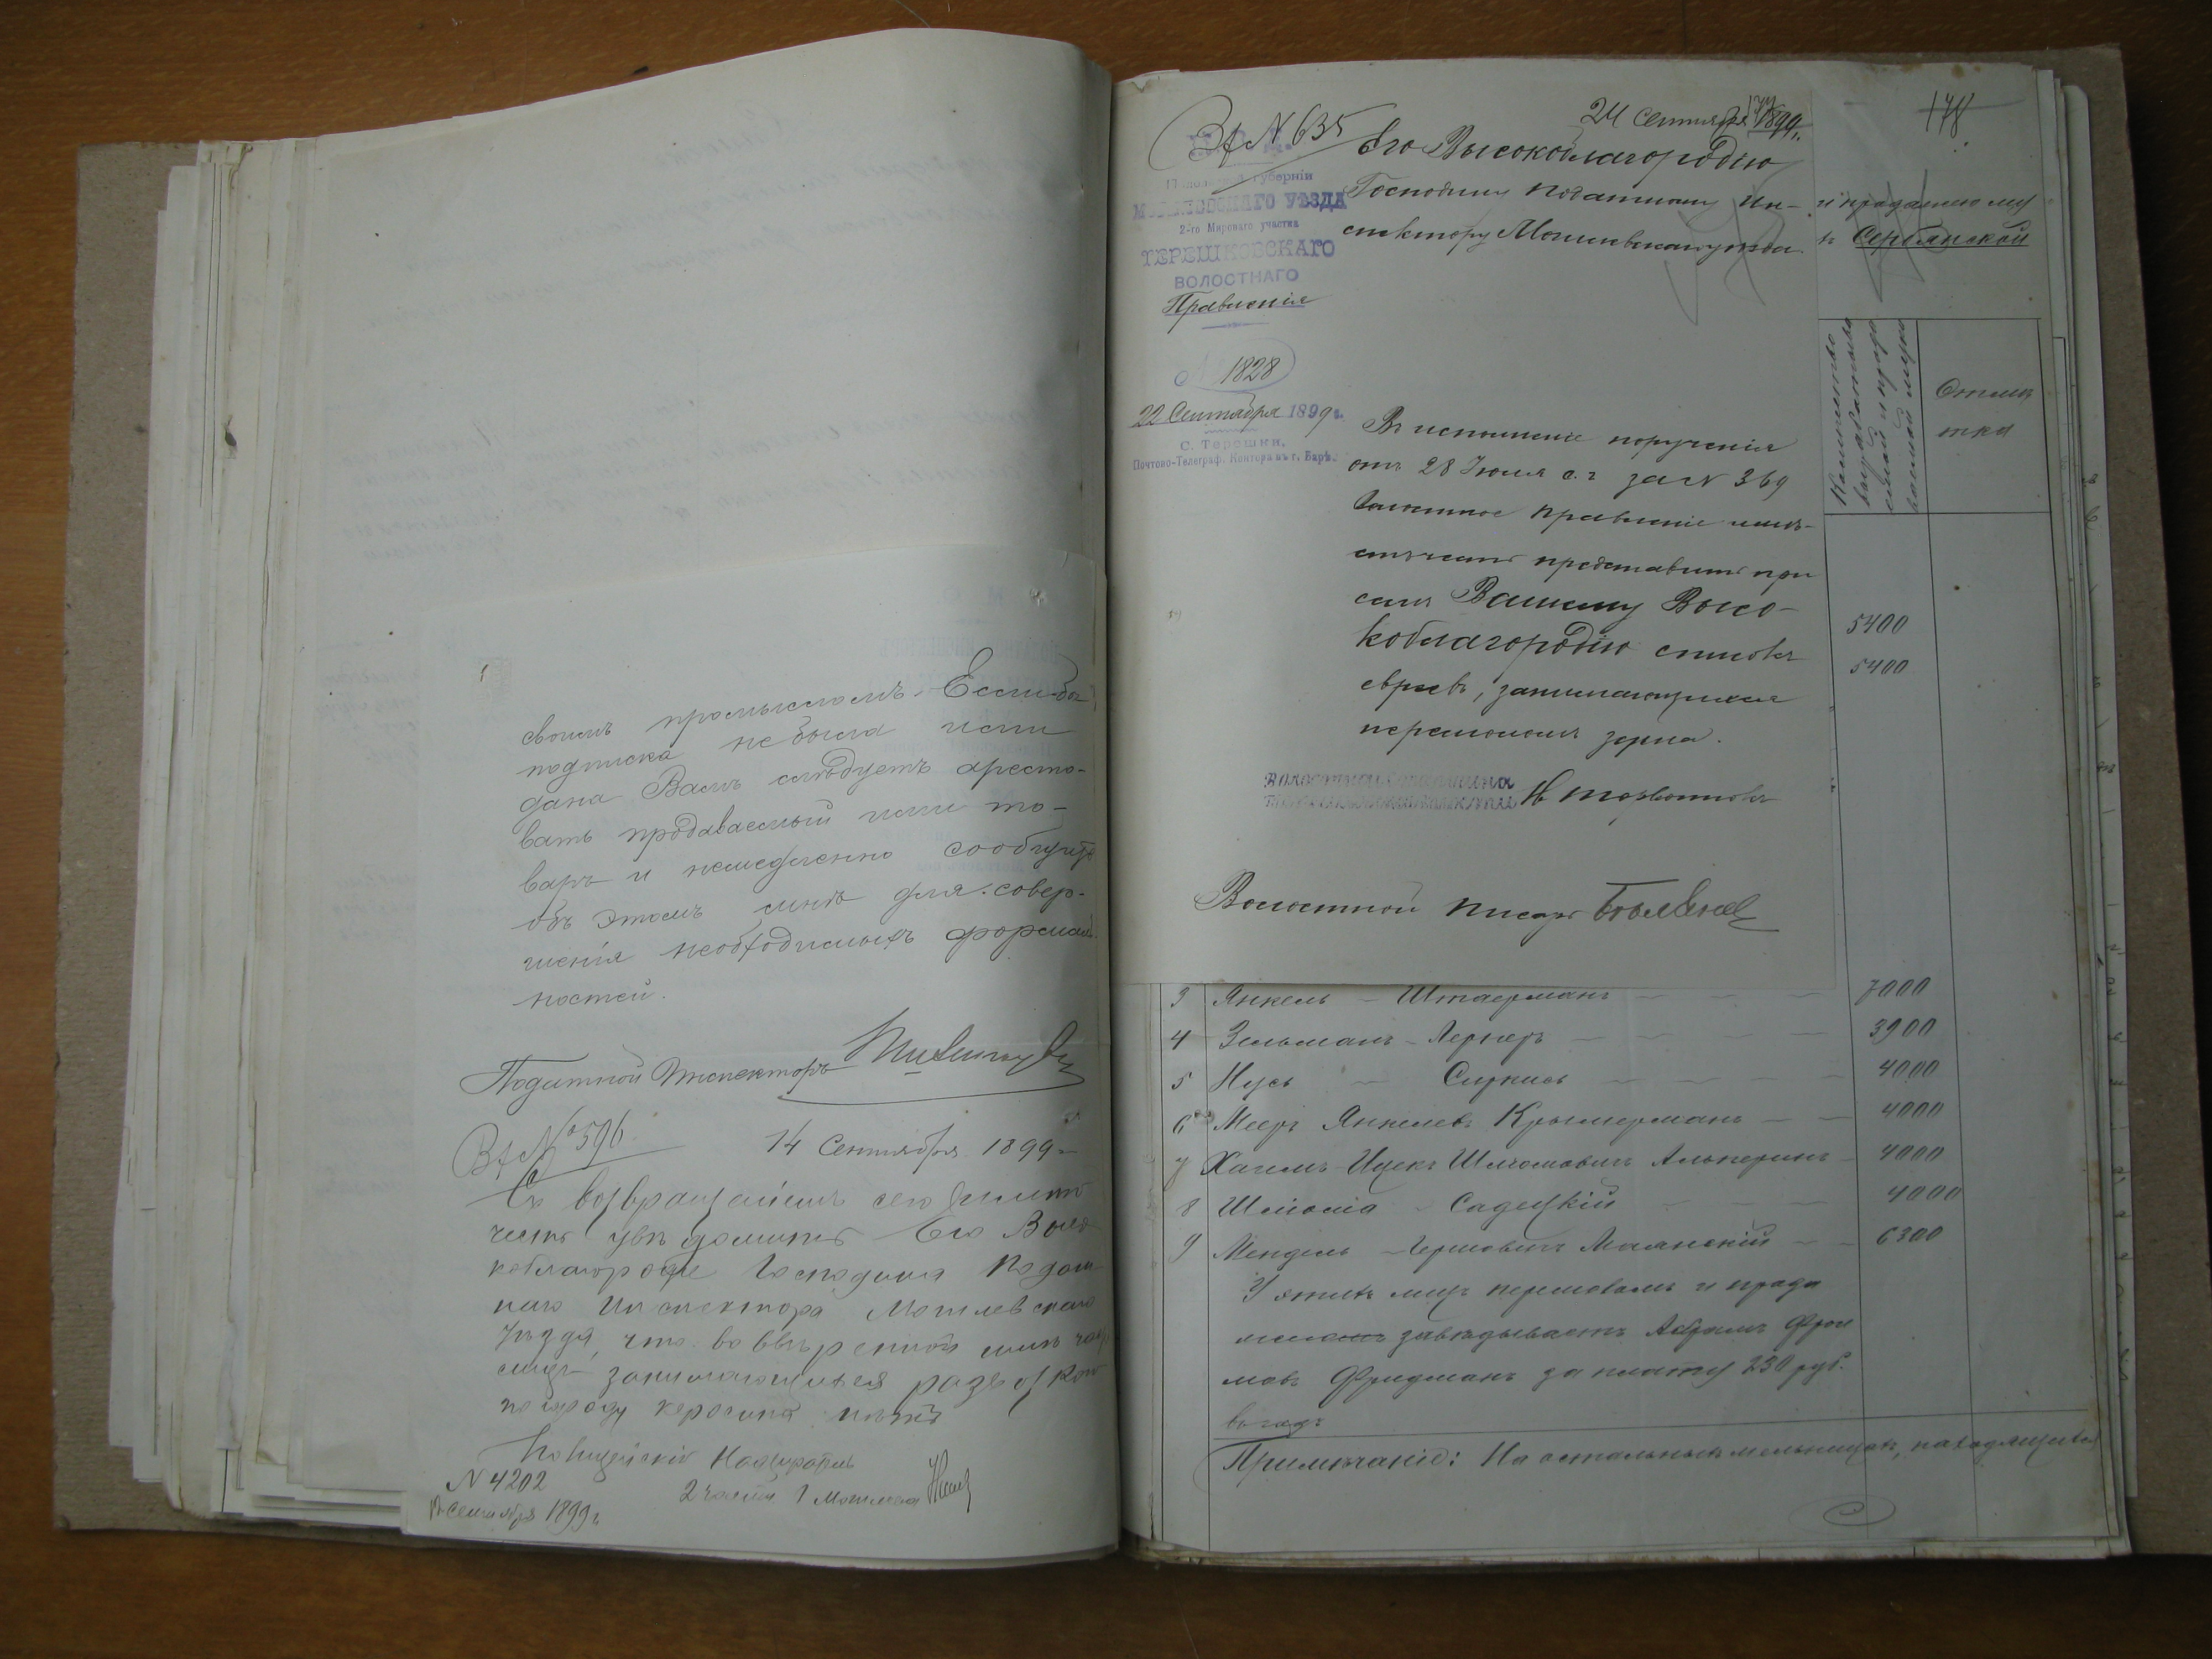 своимъ промысломъ. Если-бы
подписка не была ими
дана Вамъ слѣдуетъ аресто-
вать продаваемый ими то-
варъ и немедленно сообщить
объ этомъ мнѣ для совер-
шенія необходимыхъ формаль
ностей.
Податной Инспекторъ
Вх № 596
14 Сентября 1899 г
Съ возвращеніемъ сего имѣю
честь увѣдомить Его Высо
коблагородіе Господина Подат
наго Инспектора Могилевскаго
уѣзда, что во ввѣренной мнѣ
части занимающихся развозкой
по городу керосина нѣтъ
Полицейскій Надзиратель
2 части г Могилева
№ 4202
Сентября 1899 г
Вх № 635
24 Сентября 1899 г.
178
М. В. Д.
Подольской губерніи
МОГИЛЕВСКАГО УѢЗДА
2-го Мирового участка
ТЕРЕШКОВСКАГО
ВОЛОСТНАГО
Правленія
№ 1828
22 Сентября 1899 г.
С. Терешки,
Почтово-Телеграф. Контора въ г. Барѣ.
Его Высокоблагородію
Господину Податному Ин-
спектору Могилевскаго уѣзда.
Въ исполненіе порученія
отъ 28 Іюля с.г за № 369
Волостное Правленіе имѣ-
етъ честь представить при
семъ Вашему Высо-
коблагородію списокъ
евреевъ, занимающихся
перемоломъ зерна.
Волостной Старшина
Волостной писарь
и продажею му
въ Сербянской
Количество
Отмѣ
тка
5400
5400
3 Янкель - Штаерманъ 7000
4 Зельманъ - Лернеръ 3900
5 Нусь - Сиркисъ 4000
6 Мееръ Янкелевъ Крымерманъ 4000
7 Хаимъ-Ицекъ Шлiомовичъ Альперинъ 4000
8 Шлiома - Садецкій 4000
9 Мендель - Гершовичъ Маянскій 6300
У этихъ лицъ перемоломъ и прода
завѣдываетъ Абрамъ Фрои
мовъ Фридманъ за плату 230 руб.
въ годъ
Примѣчаніе: На остальныхъ мельницахъ, находящихся